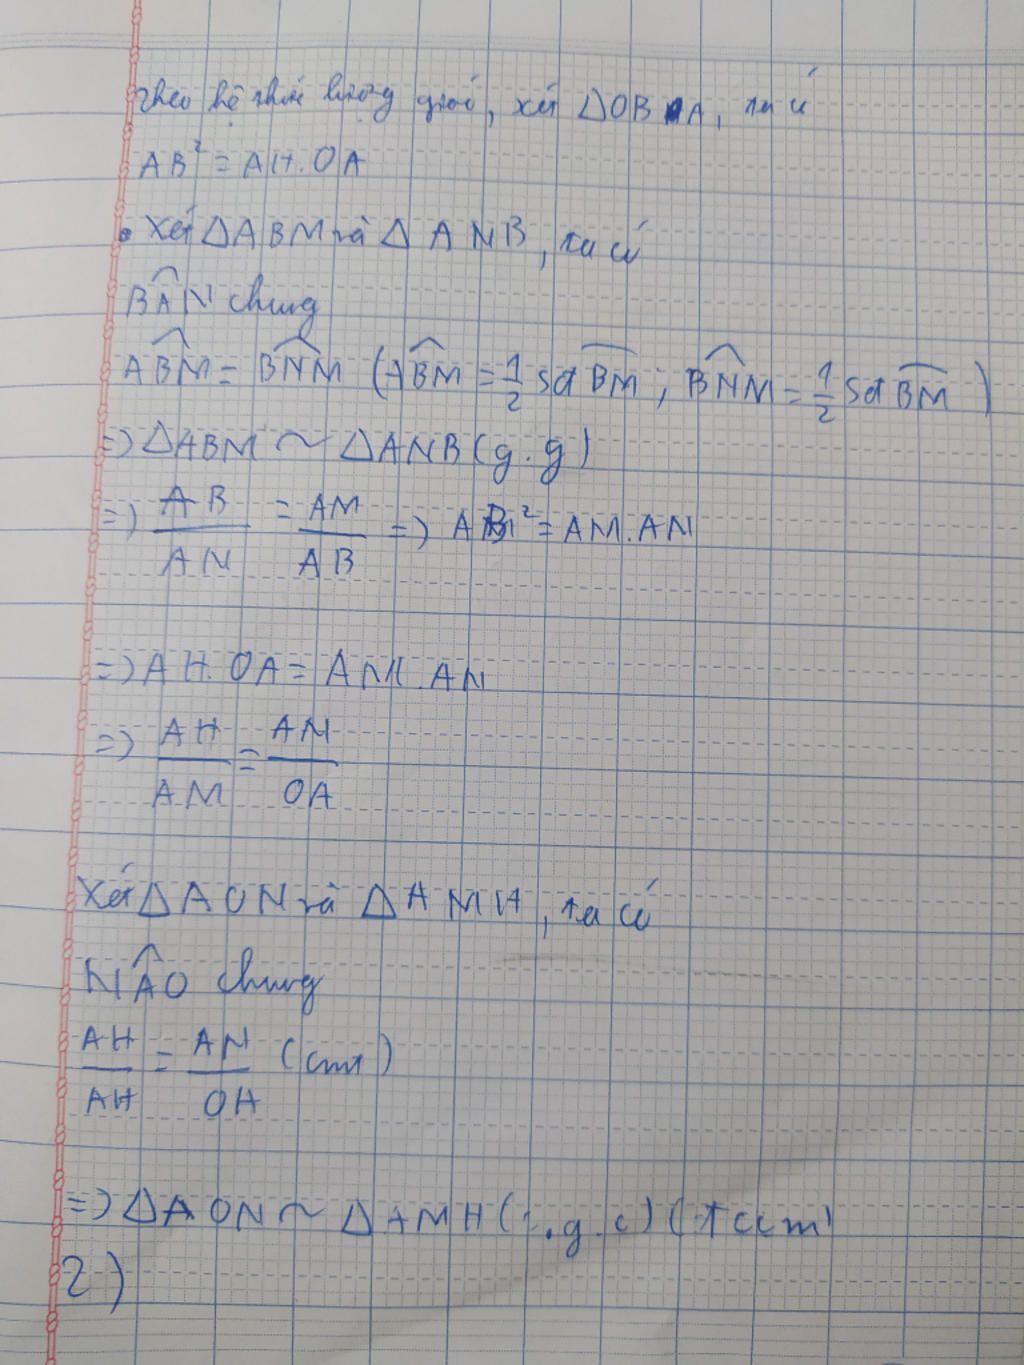 Theo hệ thức lượng giác, xét ΔOBA, ta có
AB² = AH.OA
• Xét ΔABM và ΔANB, ta có
BÂN chung
AB̂M = BN̂M (AB̂M = 1/2 sđ BM, BN̂M = 1/2 sđ BM)
=> ΔABM ~ ΔANB (g.g)
=> AB/AN = AM/AB => AB² = AM.AN
=> AH.OA = AM.AN
=> AH/AM = AN/OA
Xét ΔAON và ΔAMH, ta có
NÂO chung
AH/AH = AN/OA (cmt)
=> ΔAON ~ ΔAMH (c.g.c) (đccm)
2)